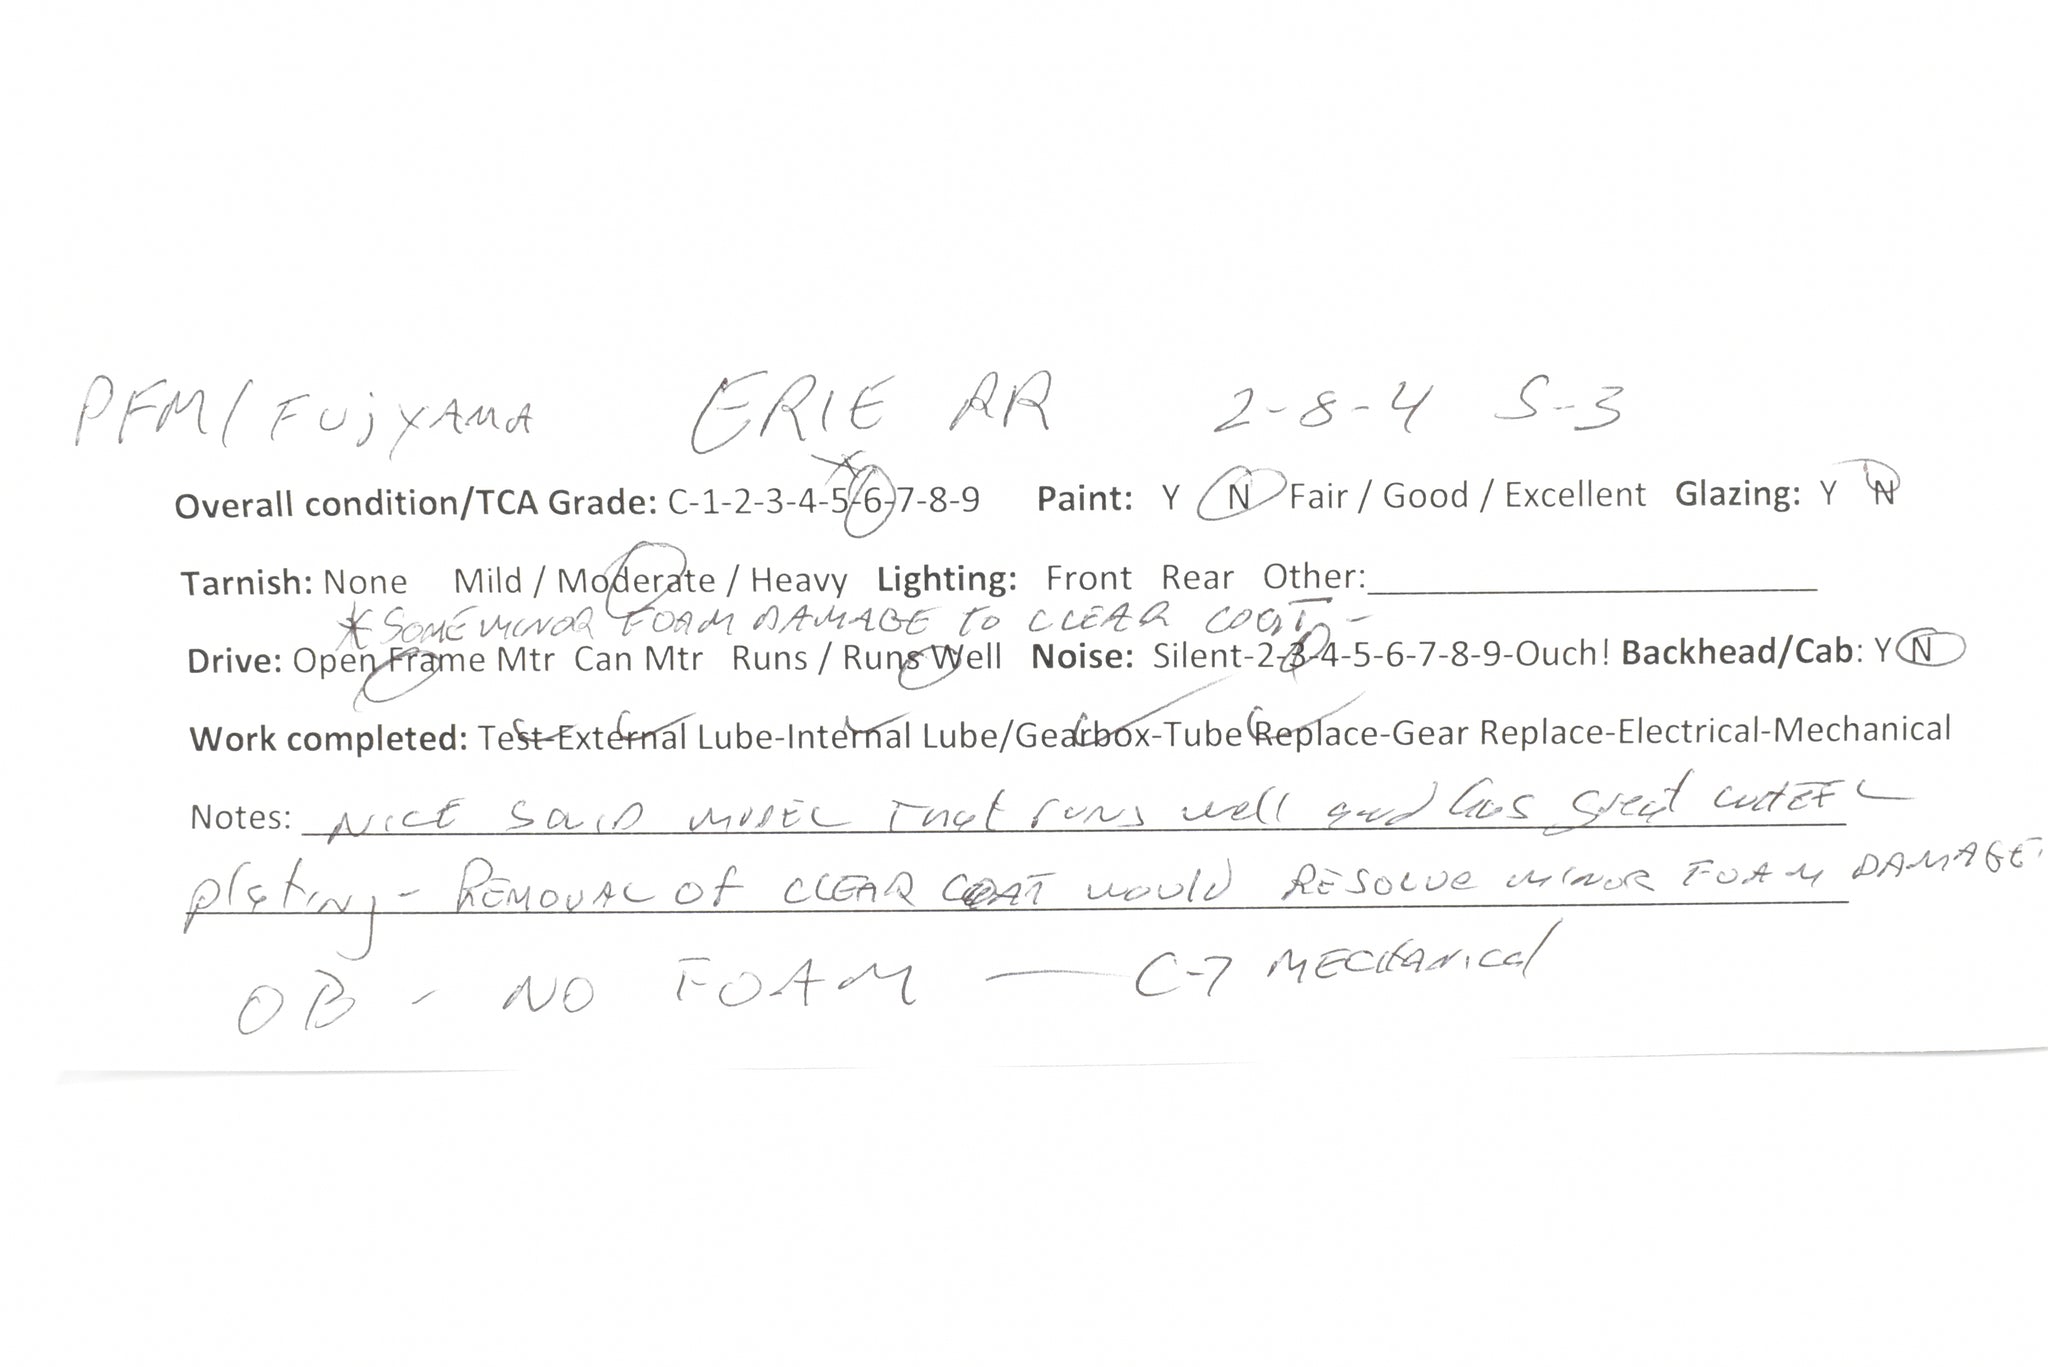 PFM/FUjYAMA ERIE RR 2-8-4 S-3
Overall condition/TCA Grade: C-1-2-3-4-5-6-7-8-9 Paint: Y N Fair / Good / Excellent Glazing: Y N
Tarnish: None Mild / Moderate / Heavy Lighting: Front Rear Other:
*SOME MINOR FOAM DAMAGE TO CLEAR COAT -
Drive: Open Frame Mtr Can Mtr Runs / Runs Well Noise: Silent-2-3-4-5-6-7-8-9-Ouch! Backhead/Cab: Y N
Work completed: Test-External Lube-Internal Lube/Gearbox-Tube Replace-Gear Replace-Electrical-Mechanical
Notes: NICE SOLID MODEL That runs well and has great WHEEL
plating - REMOVAL OF CLEAR COAT would RESOLVE MINOR FOAM DAMAGE.
OB - NO FOAM — C-7 MECHANICAL